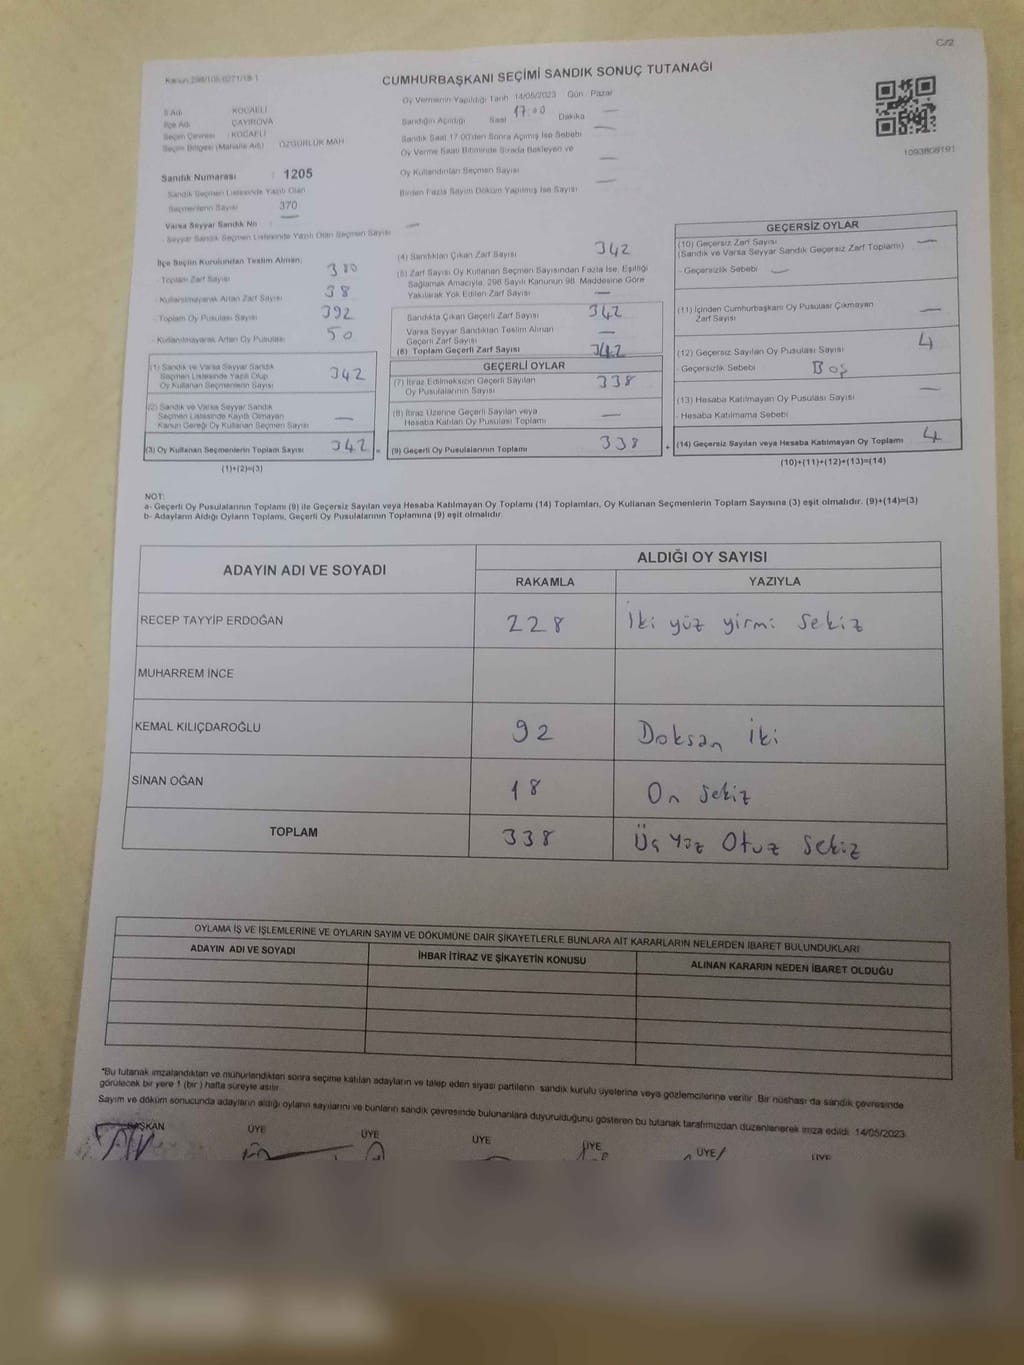 C/2
CUMHURBAŞKANI SEÇİMİ SANDIK SONUÇ TUTANAĞI
İl Adı : KOCAELİ
İlçe Adı : ÇAYIROVA
Seçim Çevresi : KOCAELİ
Seçim Bölgesi (Mahalle Adı) : ÖZGÜRLÜK MAH
Sandık Numarası : 1205
Sandık Seçmen Listesinde Yazılı Olan
Seçmenlerin Sayısı : 370
Varsa Seyyar Sandık No : —
- Seyyar Sandık Seçmen Listesinde Yazılı Olan Seçmen Sayısı —
Oy Vermenin Yapıldığı Tarih 14/05/2023 Gün : Pazar
Sandığın Açıldığı Saat 17:00 Dakika —
Sandık Saat 17.00'den Sonra Açılmış İse Sebebi —
Oy Verme Saati Bitiminde Sırada Bekleyen ve
Oy Kullandırılan Seçmen Sayısı —
Birden Fazla Sayım Döküm Yapılmış İse Sayısı —
1093808191
İlçe Seçim Kurulundan Teslim Alınan;
- Toplam Zarf Sayısı 380
- Kullanılmayarak Artan Zarf Sayısı 38
- Toplam Oy Pusulası Sayısı 392
- Kullanılmayarak Artan Oy Pusulası 50
(1) Sandık ve Varsa Seyyar Sandık
Seçmen Listesinde Yazılı Olup
Oy Kullanan Seçmenlerin Sayısı 342
(2) Sandık ve Varsa Seyyar Sandık
Seçmen Listesinde Kayıtlı Olmayan
Kanun Gereği Oy Kullanan Seçmen Sayısı —
(3) Oy Kullanan Seçmenlerin Toplam Sayısı 342 =
(1)+(2)=(3)
(4) Sandıktan Çıkan Zarf Sayısı 342
(5) Zarf Sayısı Oy Kullanan Seçmen Sayısından Fazla İse, Eşitliği
Sağlamak Amacıyla, 298 Sayılı Kanunun 98. Maddesine Göre
Yakılarak Yok Edilen Zarf Sayısı —
Sandıkta Çıkan Geçerli Zarf Sayısı 342
Varsa Seyyar Sandıktan Teslim Alınan
Geçerli Zarf Sayısı —
(6) Toplam Geçerli Zarf Sayısı 342
GEÇERLİ OYLAR
(7) İtiraz Edilmeksizin Geçerli Sayılan
Oy Pusulalarının Sayısı 338
(8) İtiraz Üzerine Geçerli Sayılan veya
Hesaba Katılan Oy Pusulası Toplamı —
(9) Geçerli Oy Pusulalarının Toplamı 338 +
GEÇERSİZ OYLAR
(10) Geçersiz Zarf Sayısı
(Sandık ve Varsa Seyyar Sandık Geçersiz Zarf Toplamı) —
- Geçersizlik Sebebi —
(11) İçinden Cumhurbaşkanı Oy Pusulası Çıkmayan
Zarf Sayısı —
(12) Geçersiz Sayılan Oy Pusulası Sayısı 4
- Geçersizlik Sebebi Boş
(13) Hesaba Katılmayan Oy Pusulası Sayısı —
- Hesaba Katılmama Sebebi
(14) Geçersiz Sayılan veya Hesaba Katılmayan Oy Toplamı 4
(10)+(11)+(12)+(13)=(14)
NOT:
a- Geçerli Oy Pusulalarının Toplamı (9) ile Geçersiz Sayılan veya Hesaba Katılmayan Oy Toplamı (14) Toplamları, Oy Kullanan Seçmenlerin Toplam Sayısına (3) eşit olmalıdır. (9)+(14)=(3)
b- Adayların Aldığı Oyların Toplamı, Geçerli Oy Pusulalarının Toplamına (9) eşit olmalıdır.
ADAYIN ADI VE SOYADI
ALDIĞI OY SAYISI
RAKAMLA YAZIYLA
RECEP TAYYİP ERDOĞAN 228 İki yüz yirmi Sekiz
MUHARREM İNCE
KEMAL KILIÇDAROĞLU 92 Doksan İki
SİNAN OĞAN 18 On Sekiz
TOPLAM 338 Üç Yüz Otuz Sekiz
OYLAMA İŞ VE İŞLEMLERİNE VE OYLARIN SAYIM VE DÖKÜMÜNE DAİR ŞİKAYETLERLE BUNLARA AİT KARARLARIN NELERDEN İBARET BULUNDUKLARI
ADAYIN ADI VE SOYADI İHBAR İTİRAZ VE ŞİKAYETİN KONUSU ALINAN KARARIN NEDEN İBARET OLDUĞU
*Bu tutanak imzalandıktan ve mühürlendikten sonra seçime katılan adayların ve talep eden siyasi partilerin sandık kurulu üyelerine veya gözlemcilerine verilir. Bir nüshası da sandık çevresinde
görülecek bir yere 1 (bir) hafta süreyle asılır.
Sayım ve döküm sonucunda adayların aldığı oyların sayılarını ve bunların sandık çevresinde bulunanlara duyurulduğunu gösteren bu tutanak tarafımızdan düzenlenerek imza edildi. 14/05/2023
BAŞKAN ÜYE ÜYE ÜYE ÜYE ÜYE ÜYE